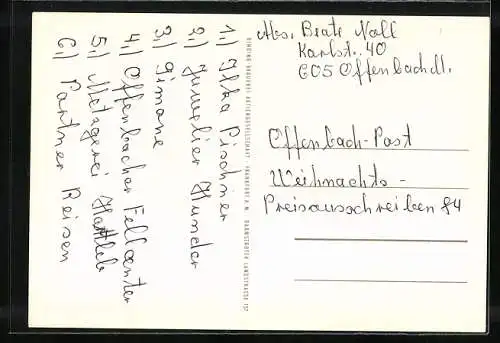 1.) Ilka Pischner
2.) Juwelier Hunder
3.) Simone
4.) Offenbacher Fellcenter
5.) Metzgerei Hattleb
6.) Partner Reisen
BINDING BRAUEREI AKTIENGESELLSCHAFT · FRANKFURT A. M. DARMSTÄDTER LANDSTRASSE
Abs. Beate Nall
Karlstr. 40
605 Offenbach/M.
Offenbach-Post
Weihnachts-
Preisausschreiben 84